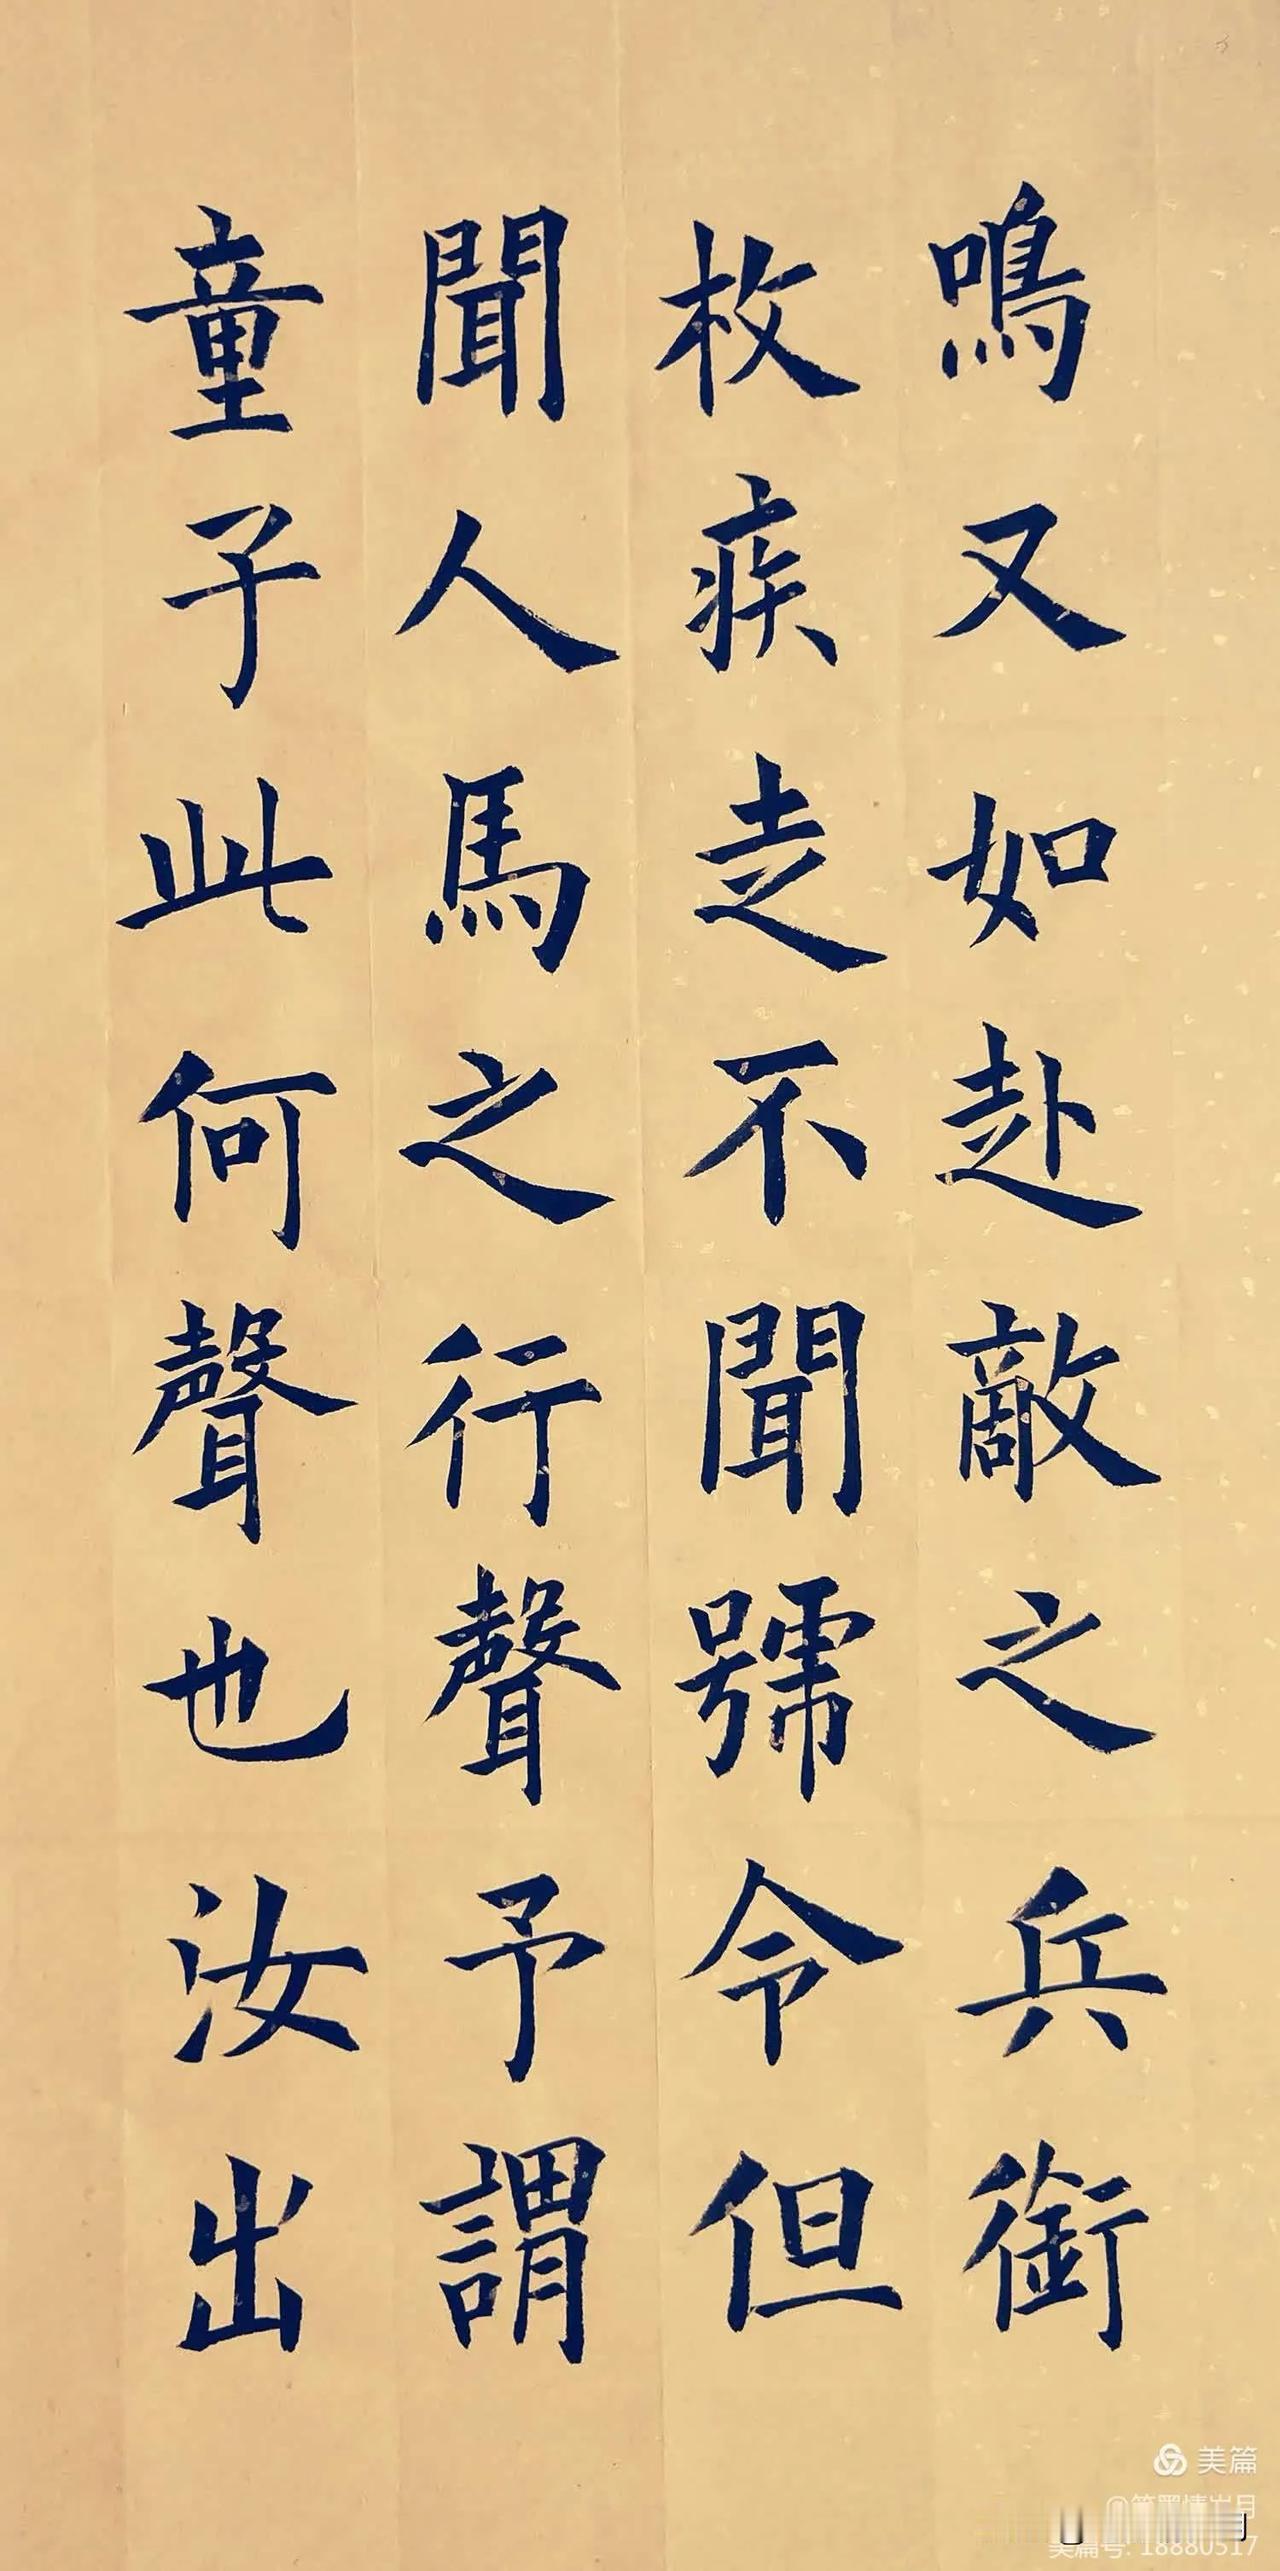 鳴又如赴敵之兵銜
枚疾走不聞號令但
聞人馬之行聲予謂
童子此何聲也汝出
美篇
美篇号: 18880517